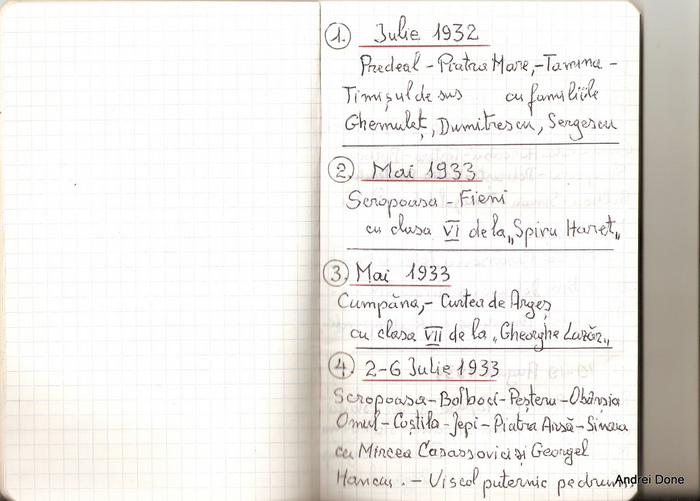 1. Iulie 1932
Predeal - Piatra Mare, - Tamina -
Timișul de sus cu familiile
Ghermuleț, Dumitrescu, Sergescu
2. Mai 1933
Scropoasa - Fieni
cu clasa VI de la „Spiru Haret„
3. Mai 1933
Cumpăna, - Curtea de Argeș
cu clasa VII de la „Gheorghe Lazăr„
4. 2-6 Iulie 1933
Scropoasa - Bolboci - Peștera - Obârsia
Omul - Coștila - Jepi - Piatra Arsă - Sinaia
cu Mircea Casassovici și Georgel
Hancu. - Viscol puternic pe drum
Andrei Done